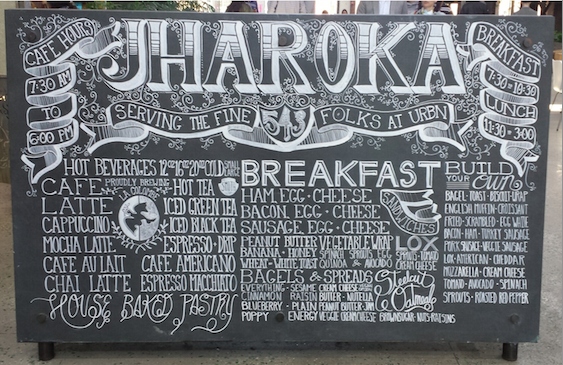 CAFE HOURS
7:30 AM
TO
6:00 PM
JHAROKA
BREAKFAST
7:30 - 10:30
LUNCH
11:30 - 3:00
SERVING THE FINE 543 FOLKS AT URBN
HOT BEVERAGES 12oz 16oz 20oz COLD SMALL LARGE
CAFE
LATTE
CAPPUCCINO
MOCHA LATTE
CAFE AU LAIT
CHAI LATTE
PROUDLY BREWING
LA COLOMBE
HOT TEA
ICED GREEN TEA
ICED BLACK TEA
ESPRESSO · DRIP
CAFE AMERICANO
ESPRESSO MACCHIATO
HOUSE BAKED PASTRY
BREAKFAST
SANDWICHES
HAM, EGG · CHEESE
BACON, EGG · CHEESE
SAUSAGE, EGG · CHEESE
PEANUT BUTTER
BANANA · HONEY
WHEAT · WHITE TOAST
VEGETABLE WRAP
SPINACH SPROUTS EGG
QUINOA & AVOCADO
LOX
SPROUTS · TOMATO
CREAM CHEESE
BAGELS & SPREADS
EVERYTHING · SESAME
CINNAMON RAISIN
BLUEBERRY · PLAIN
POPPY ENERGY
CREAM CHEESE
BUTTER · NUTELLA
PEANUT BUTTER · JAM
VEGGIE CREAM CHEESE
Steelcut Oatmeal
BROWN SUGAR · NUTS · RAISINS
BUILD
YOUR own
BAGEL · TOAST · BISCUIT · WRAP
ENGLISH MUFFIN · CROISSANT
FRIED · SCRAMBLED · EGG WHITE
BACON · HAM · TURKEY SAUSAGE
PORK SAUSAGE · VEGGIE SAUSAGE
LOX · AMERICAN · CHEDDAR
MOZZARELLA · CREAM CHEESE
TOMATO · AVOCADO · SPINACH
SPROUTS · ROASTED RED PEPPER